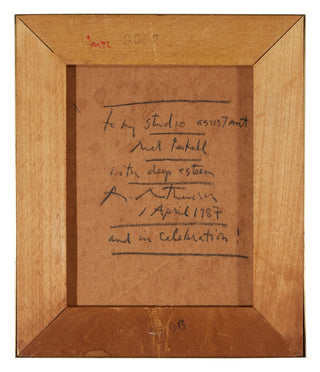 to my studio assistant
Mel Paskell
with deep esteem
1 April 1987
and in celebration!
06